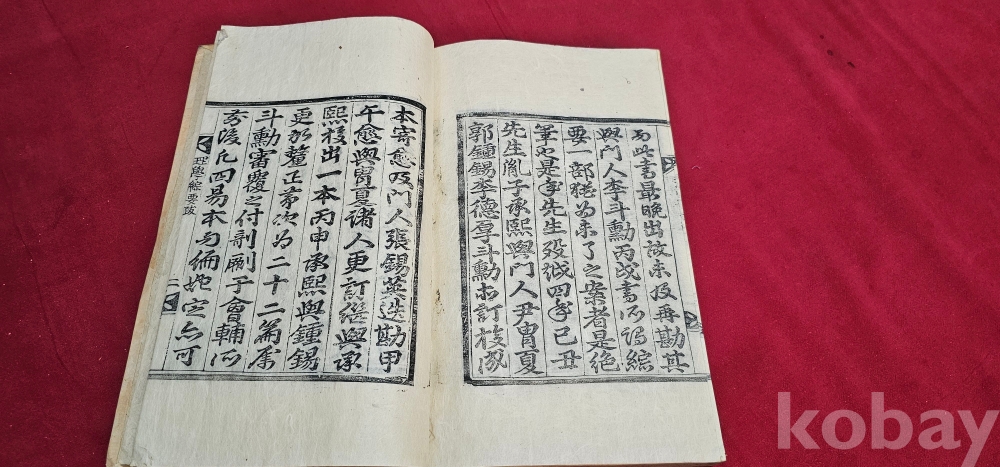 而此書最晩出故未及再勘其
與門人李斗勳丙戌書所謂綜
要一部猶爲未了之案者是絶
筆也是年先生歿越四年己丑
先生胤子承熙與門人尹冑夏
郭鍾錫李德厚斗勳方訂校成
本寄愈及門人張錫英迭勘甲
午愈與冑夏诸人更訂繼與承
熙校出一本丙申承熙與鍾錫
更加釐正苐次为二十二篇屬
斗勳審覆之付剞劂子會輔所
前後凡四易本而編始定亦可
理學綜要跋
二
kobay